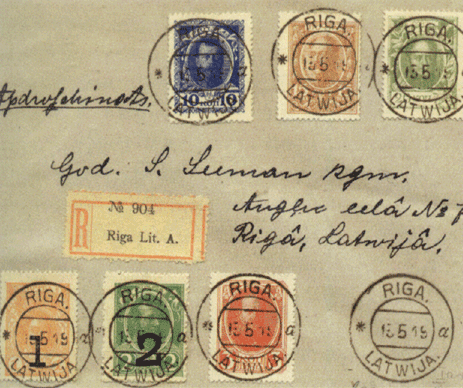 RIGA. 15 5 19 a LATWIJA.
10 10
RIGA. 15 5 19 LATWIJA.
RIGA. 15 5 19 a LATWIJA.
God. S. Leeman kgm.
№ 904
R
Riga Lit. A.
Rigâ, Latwijâ.
RIGA. 15 5 19 a LATWIJA.
1
RIGA. 15 5 19 a LATWIJA.
2
RIGA. 15 5 19 a LATWIJA.
RIGA. 15 5 19 a LATWIJA.